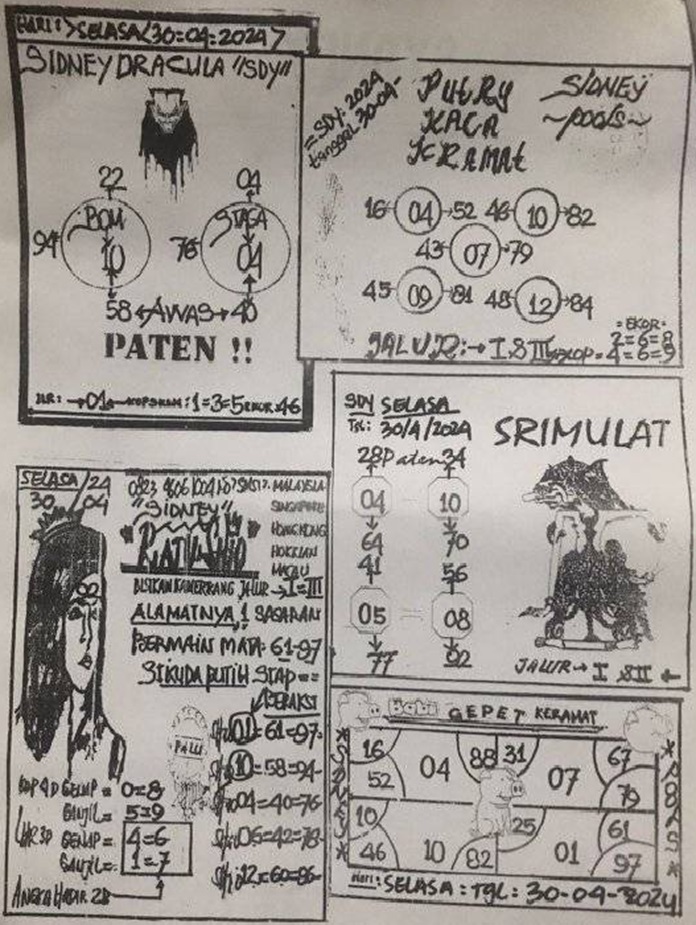 HARI:>SELASA<30=04=2024>
SIDNEY DRACULA "SDY"
22 04
94 BOM 10 76 STAGA 04
58 AWAS 40
PATEN !!
01 1=3=5 EKOR 46
=SDY: 2024
tanggal 30-04-
PUtRY
KACA
KRAMAt
SIDNEY
~pools~
16 04 52 46 10 82
43 07 79
45 09 81 48 12 84
JALUR: I & III
=EKOR=
2=6=8
KOP=4=6=9
SDY SELASA
TGL: 30/4/2024
SRIMULAT
28 Paten 34
04 10
64 70
41 56
05 08
77 92
JALUR I & II
SELASA / 24
30 04
MALAYSIA
SINGAPORE
HONGKONG
HOKKIAN
MACAU
"SIDNEY"
JALUR I=III
ALAMATNYA 1 SASARAN
BERMAIN MATA: 61-97
SIKUDA PUTIH SIAP==
BERAKSI
01=61=97
10=58=94
04=40=76
05=42=78
12=60=86
PALU
KOP 4D GENAP = 0=8
GANJIL = 5=9
GENAP = 4=6
GANJIL = 1=7
ANGKA HADIR 28
Babi GEPET KERAMAT
*SIDNEY*
*POOLS*
16 52 04 88 31 07 67 79
10 46 10 82 25 01 61 97
Hari: SELASA: TGL: 30-04-2024